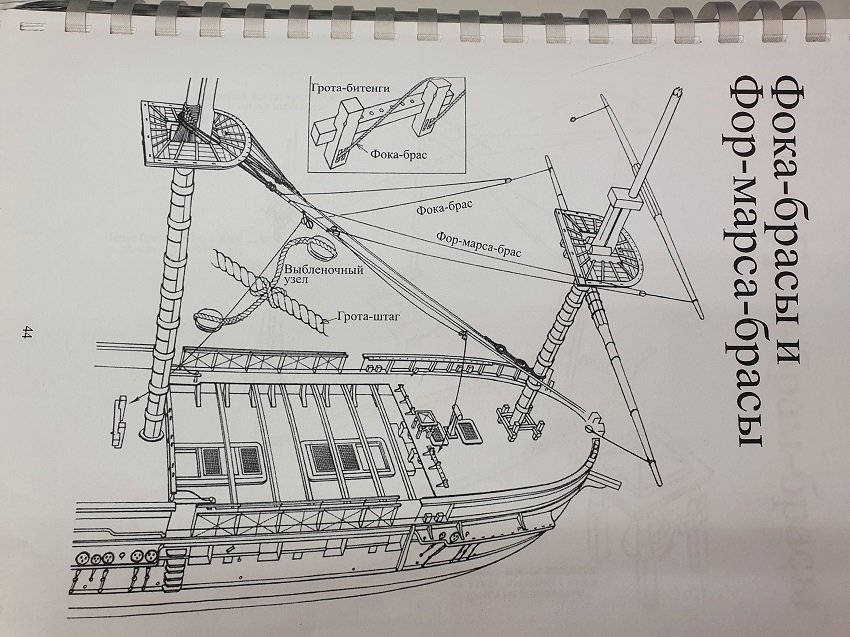 Фока-брасы и
Фор-марса-брасы
Грота-битенги
Фока-брас
Фока-брас
Фор-марса-брас
Выбленочный
узел
Грота-штаг
44